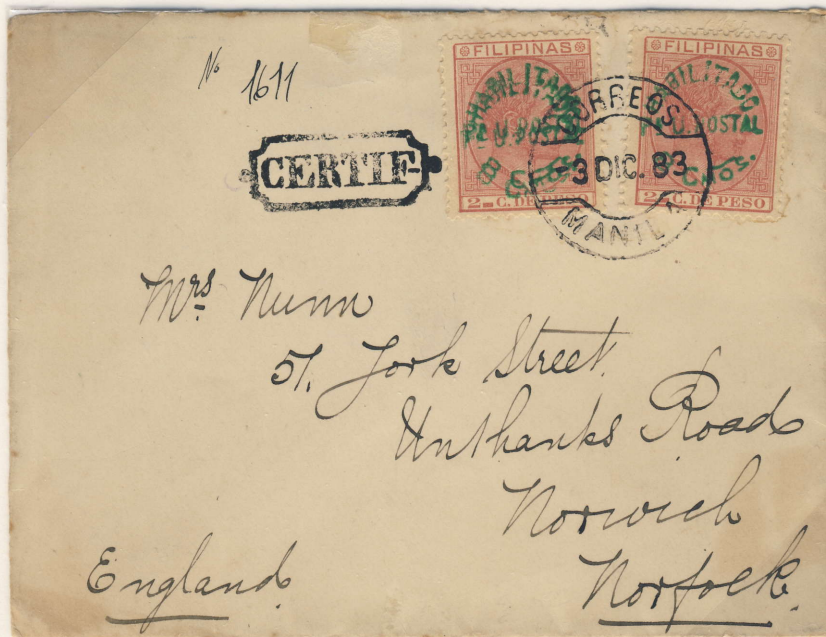 No 1611
CERTIF
FILIPINAS
HABILITADO
8 C
2 C. DE
FILIPINAS
BILITADO
POSTAL
Cmos.
2 C. DE PESO
CORREOS
3 DIC. 83
MANIL
Mrs Nunn
51. York Street.
Unthanks Road
Norwich
Norfock.
England